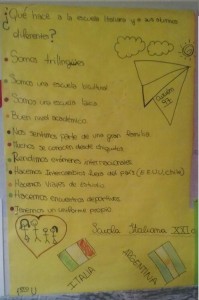 ¿Qué hace a la escuela Italiana y a sus alumnos
diferentes?
• Somos trilingües
• Somos una escuela bicultural
• Somos una escuela laica
• Buen nivel académico
• Nos sentimos parte de una gran familia
• Muchos se conocen desde chiquitos
• Rendimos exámenes internacionales
• Hacemos intercambios fuera del país
• Hacemos viajes de estudio
• Hacemos encuentros deportivos
• Tenemos un uniforme propio
Scuola Italiana XXI
ITALIA
ARGENTINA